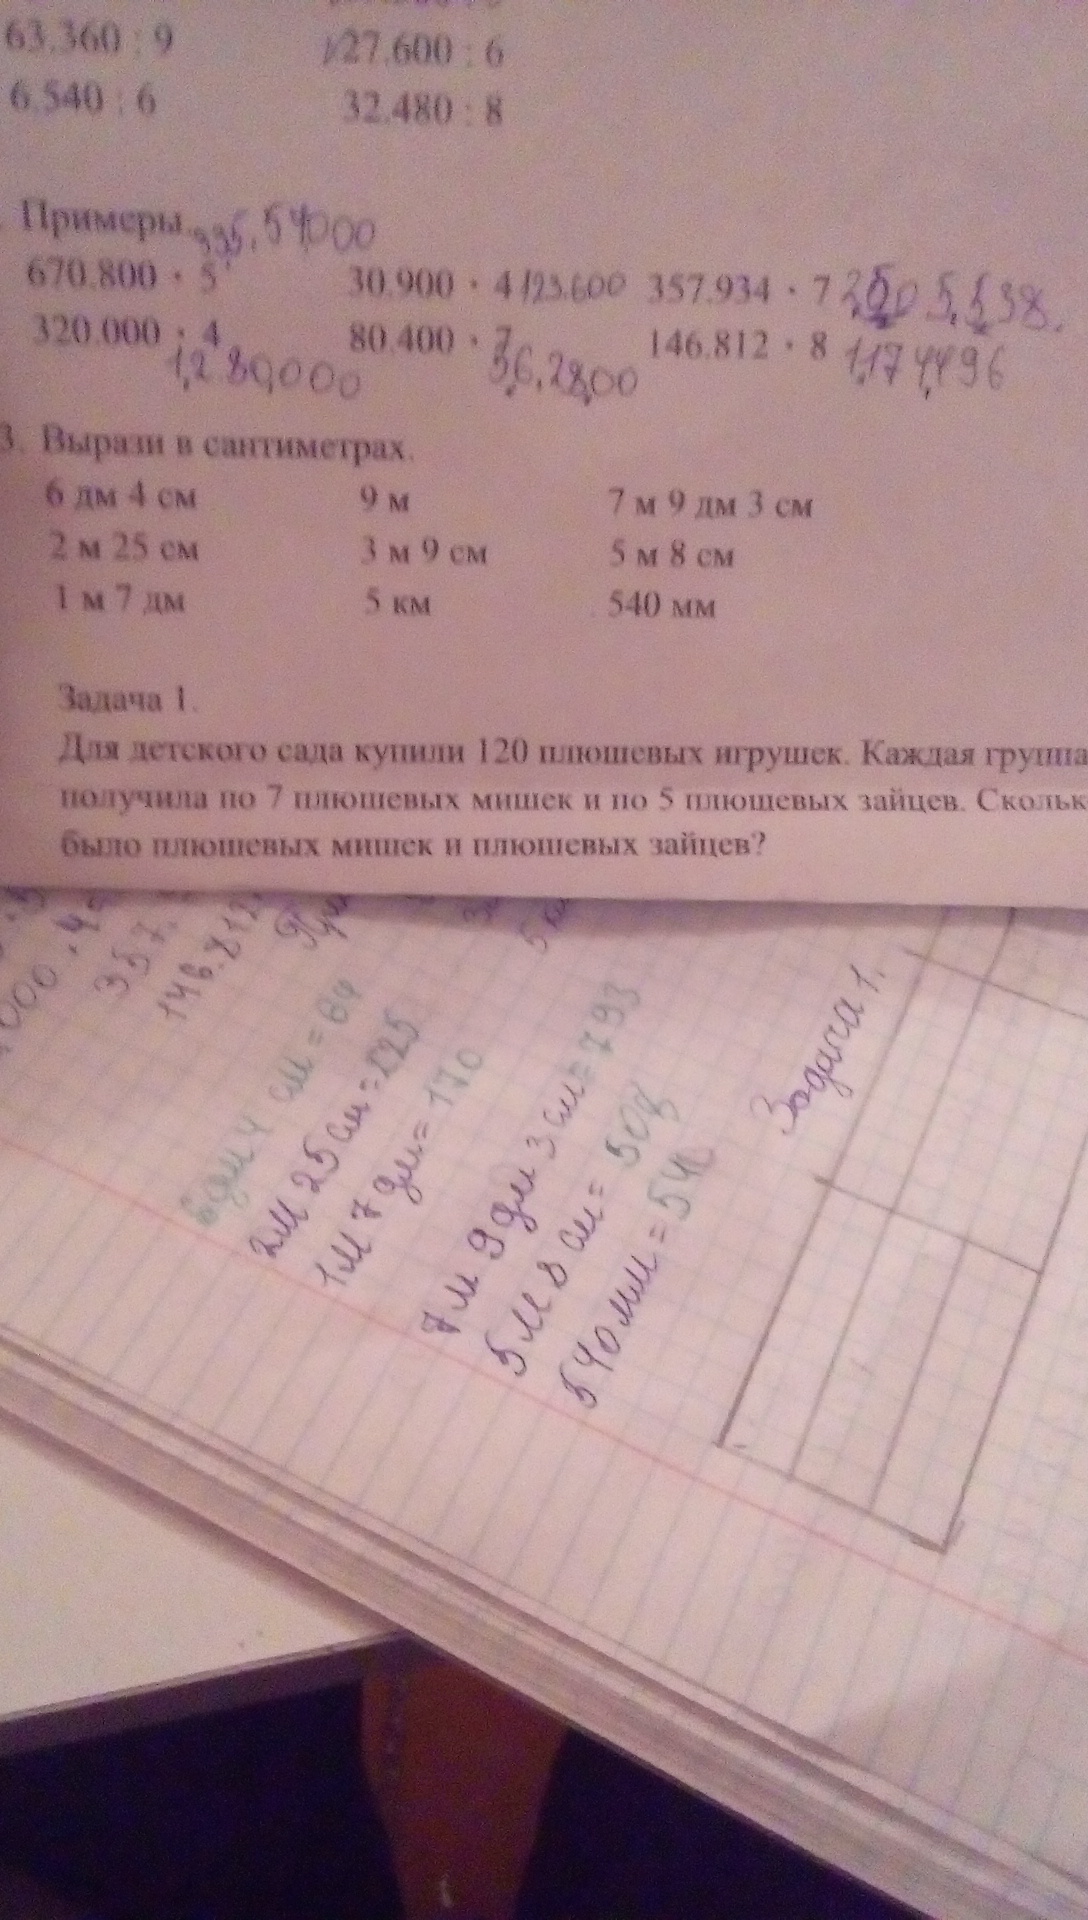 63.360 : 9 27.600 : 6
6.540 : 6 32.480 : 8
Примеры.
670.800 · 5 30.900 · 4 123.600 357.934 · 7
320.000 · 4 80.400 · 7 146.812 · 8
1,280,000
3. Вырази в сантиметрах.
6 дм 4 см 9 м 7 м 9 дм 3 см
2 м 25 см 3 м 9 см 5 м 8 см
1 м 7 дм 5 км 540 мм
Задача 1.
Для детского сада купили 120 плюшевых игрушек. Каждая группа
получила по 7 плюшевых мишек и по 5 плюшевых зайцев. Скольк
было плюшевых мишек и плюшевых зайцев?
357.
146.812
6 дм 4 см = 64
2м 25 см = 225
1м 7 дм = 170
7м 9 дм 3 см = 793
5м 8 см = 508
540мм =
Задача 1.